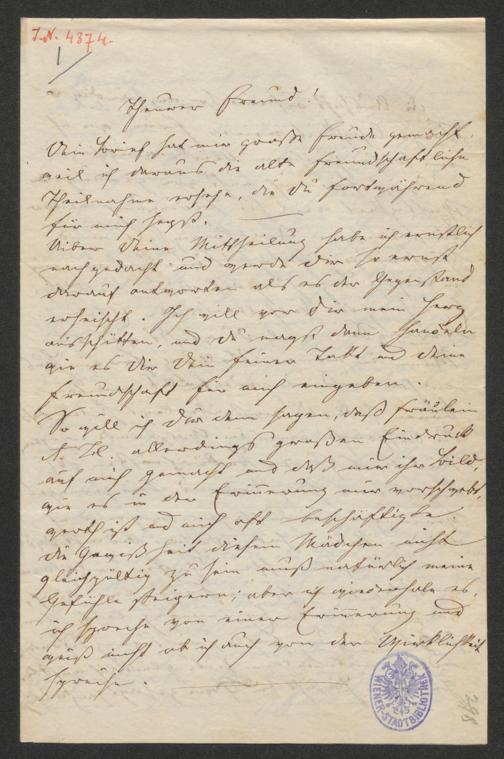 J.N. 4374.
1
Theurer Freund!
Dein Brief hat mir große Freude gemacht
weil ich daraus die alte freundschaftliche
Theilnahme ersehe, die du fortwährend
für mich hegst.
Über Deine Mittheilung habe ich ernstlich
nachgedacht und werde dir so ernst
darauf antworten als es der Gegenstand
erheischt. Ich will vor Dir mein Herz
ausschütten, und du magst dann handeln
wie es dir dein feiner Takt und deine
Freundschaft für mich eingeben.
So will ich dir denn sagen, daß Fräulein
allerdings großen Eindruck
auf mich gemacht und daß mir ihr Bild,
wie es in der Erinnerung mir vorschwebt,
werth ist und mich oft beschäftigte.
Die Gewißheit diesem Mädchen nicht
gleichgültig zu sein muß natürlich meine
Gefühle steigern; aber ich wiederhole es,
ich spreche von einer Erinnerung und
weiß nicht ob ich auch von der Wirklichkeit
spreche.
WIENER STADTBIBLIOTHEK
298